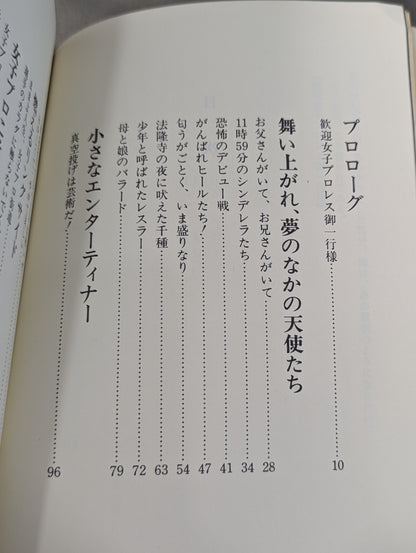 プロローグ
歓迎女子プロレス御一行様……10
舞い上がれ、夢のなかの天使たち
お父さんがいて、お兄さんがいて……28
11時59分のシンデレラたち……34
恐怖のデビュー戦……41
がんばれヒールたち!……47
匂うがごとく、いま盛りなり……54
法隆寺の夜に吠えた千種……63
少年と呼ばれたレスラー……72
母と娘のバラード……79
小さなエンターティナー
真空投げは芸術だ!……96